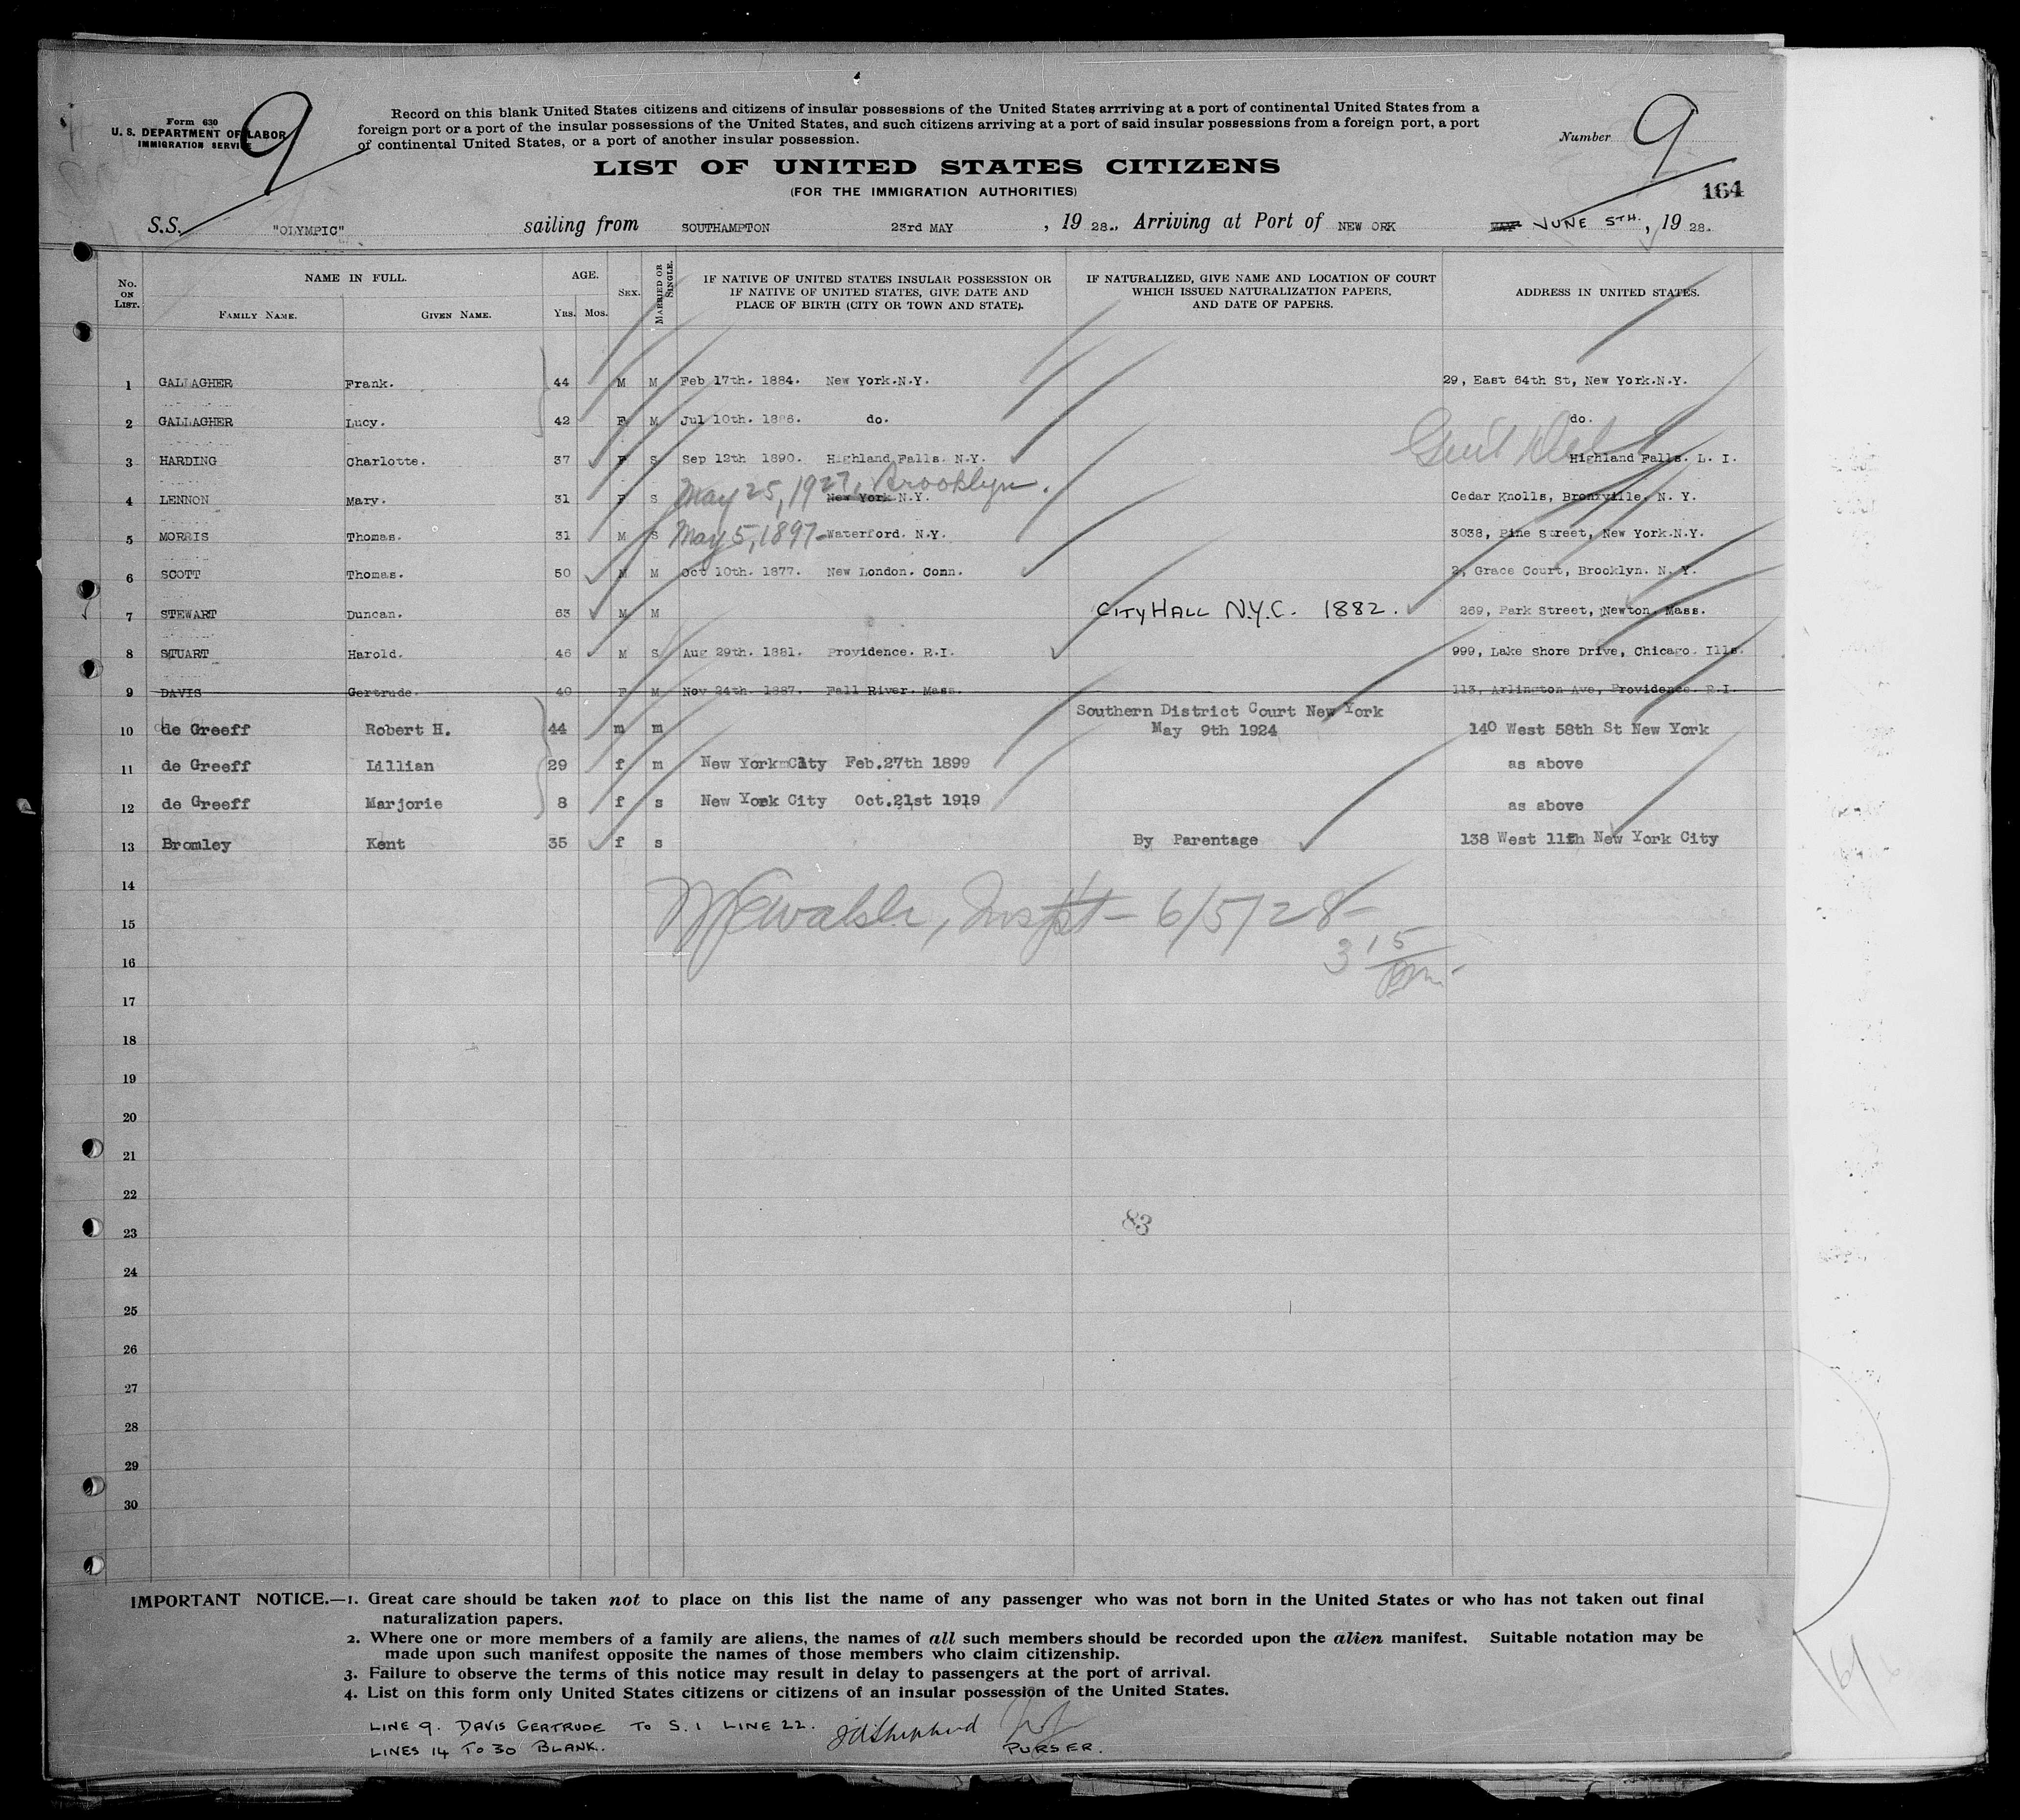 Form 630
U. S. DEPARTMENT OF LABOR
IMMIGRATION SERVICE
9
Record on this blank United States citizens and citizens of insular possessions of the United States arrriving at a port of continental United States from a
foreign port or a port of the insular possessions of the United States, and such citizens arriving at a port of said insular possessions from a foreign port, a port
of continental United States, or a port of another insular possession.
Number 9
LIST OF UNITED STATES CITIZENS
(FOR THE IMMIGRATION AUTHORITIES)
164
S.S. "OLYMPIC" sailing from SOUTHAMPTON 23rd MAY , 19 28., Arriving at Port of NEW ORK MAY JUNE 5TH. , 19 28.
No. ON LIST. NAME IN FULL. AGE. SEX. MARRIED OR SINGLE. IF NATIVE OF UNITED STATES INSULAR POSSESSION OR IF NATIVE OF UNITED STATES, GIVE DATE AND PLACE OF BIRTH (CITY OR TOWN AND STATE). IF NATURALIZED, GIVE NAME AND LOCATION OF COURT WHICH ISSUED NATURALIZATION PAPERS, AND DATE OF PAPERS. ADDRESS IN UNITED STATES.
FAMILY NAME. GIVEN NAME. YRS. MOS.
1 GALLAGHER Frank. 44 M M Feb 17th. 1884. New York.N.Y. 29, East 64th St, New York.N.Y.
2 GALLAGHER Lucy. 42 F M Jul 10th. 1886. do. do.
3 HARDING Charlotte. 37 F S Sep 12th 1890. Highland Falls. N.Y. Highland Falls. L. I.
4 LENNON Mary. 31 F S May 25, 1927, Brooklyn. New York N.Y. Cedar Knolls, Bronxville. N. Y.
5 MORRIS Thomas. 31 M S May 5, 1897- Waterford. N.Y. 3038, Pine Street, New York.N.Y.
6 SCOTT Thomas. 50 M M Oct 10th. 1877. New London. Conn. 2, Grace Court, Brooklyn. N. Y.
7 STEWART Duncan. 63 M M CITY HALL N.Y.C. 1882. 269, Park Street, Newton. Mass.
8 STUART Harold. 46 M S Aug 29th. 1881. Providence. R.I. 999, Lake Shore Drive, Chicago. Ills.
9 DAVIS Gertrude. 40 F M Nov 24th. 1887. Fall River. Mass. 113, Arlington Ave, Providence. R.I.
Southern District Court New York
10 de Greeff Robert H. 44 m m May 9th 1924 140 West 58th St New York
11 de Greeff Lillian 29 f m New York City Feb.27th 1899 as above
12 de Greeff Marjorie 8 f s New York City Oct.21st 1919 as above
13 Bromley Kent 35 f s By Parentage 138 West 11th New York City
14
15 Inspt - 6/5/28-
16 3 15 pm.
17
18
19
20
21
22
23 83
24
25
26
27
28
29
30
IMPORTANT NOTICE.—1. Great care should be taken not to place on this list the name of any passenger who was not born in the United States or who has not taken out final
naturalization papers.
2. Where one or more members of a family are aliens, the names of all such members should be recorded upon the alien manifest. Suitable notation may be
made upon such manifest opposite the names of those members who claim citizenship.
3. Failure to observe the terms of this notice may result in delay to passengers at the port of arrival.
4. List on this form only United States citizens or citizens of an insular possession of the United States.
LINE 9. DAVIS GERTRUDE TO S.1 LINE 22.
LINES 14 TO 30 BLANK. PURSER.